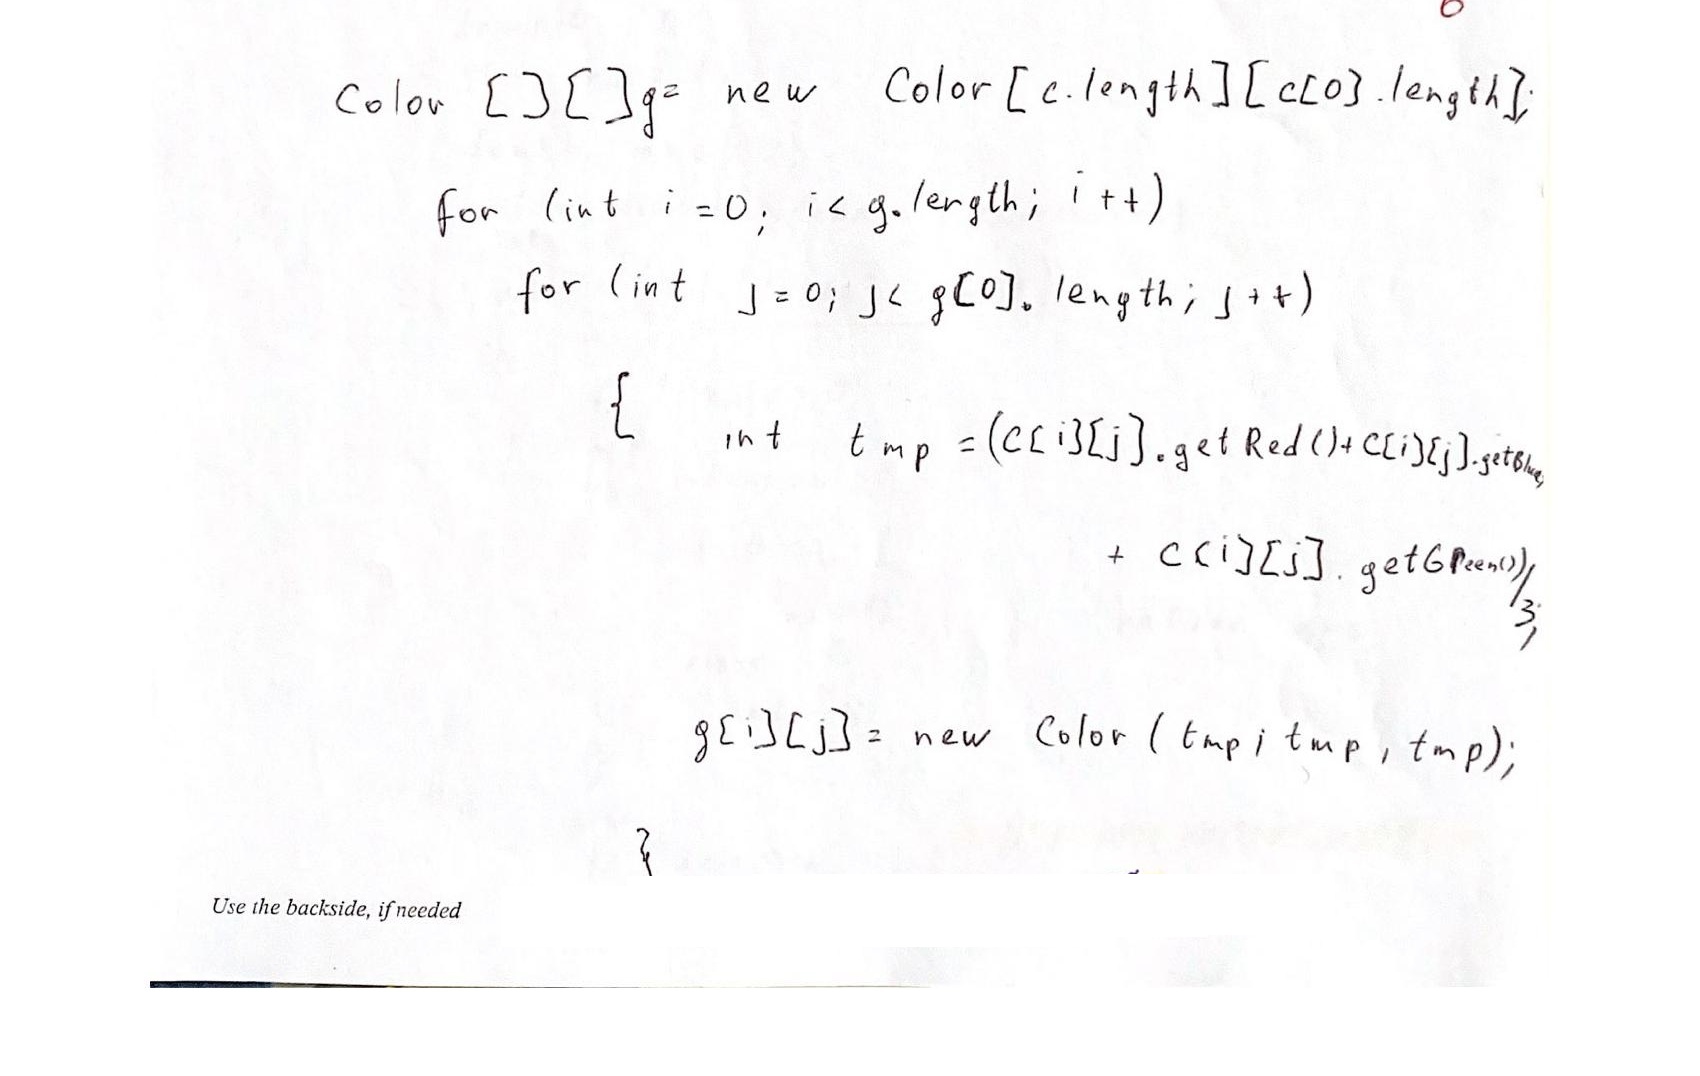 Color [][]g= new Color[c.length][c[0].length];
for (int i=0; i< g.length; i++)
for (int j=0; j< g[0].length; j++)
{ int tmp =(c[i][j].getRed()+c[i][j].getBlue
+ c[i][j].getGreen())/3;
g[i][j]= new Color (tmp; tmp, tmp);
}
Use the backside, if needed